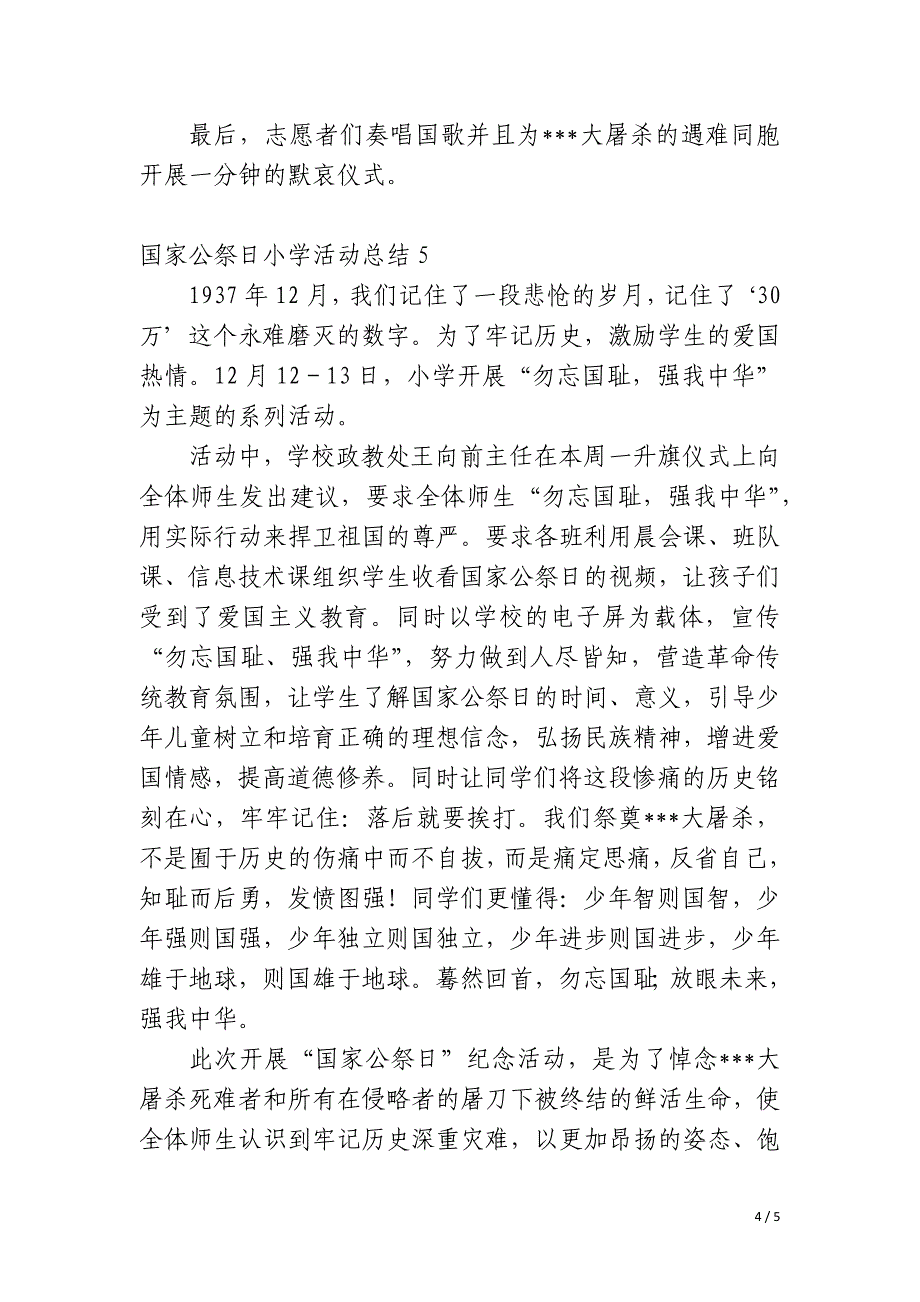 最后，志愿者们奏唱国歌并且为***大屠杀的遇难同胞
开展一分钟的默哀仪式。
国家公祭日小学活动总结 5
1937 年 12 月，我们记住了一段悲怆的岁月，记住了‘30
万’这个永难磨灭的数字。为了牢记历史，激励学生的爱国
热情。12 月 12－13 日，小学开展“勿忘国耻，强我中华”
为主题的系列活动。
活动中，学校政教处王向前主任在本周一升旗仪式上向
全体师生发出建议，要求全体师生“勿忘国耻，强我中华”，
用实际行动来捍卫祖国的尊严。要求各班利用晨会课、班队
课、信息技术课组织学生收看国家公祭日的视频，让孩子们
受到了爱国主义教育。同时以学校的电子屏为载体，宣传
“勿忘国耻、强我中华”，努力做到人尽皆知，营造革命传
统教育氛围，让学生了解国家公祭日的时间、意义，引导少
年儿童树立和培育正确的理想信念，弘扬民族精神，增进爱
国情感，提高道德修养。同时让同学们将这段惨痛的历史铭
刻在心，牢牢记住：落后就要挨打。我们祭奠***大屠杀，
不是囿于历史的伤痛中而不自拔，而是痛定思痛，反省自己，
知耻而后勇，发愤图强！同学们更懂得：少年智则国智，少
年强则国强，少年独立则国独立，少年进步则国进步，少年
雄于地球，则国雄于地球。蓦然回首，勿忘国耻；放眼未来，
强我中华。
此次开展“国家公祭日”纪念活动，是为了悼念***大
屠杀死难者和所有在侵略者的屠刀下被终结的鲜活生命，使
全体师生认识到牢记历史深重灾难，以更加昂扬的姿态、饱
4 / 5